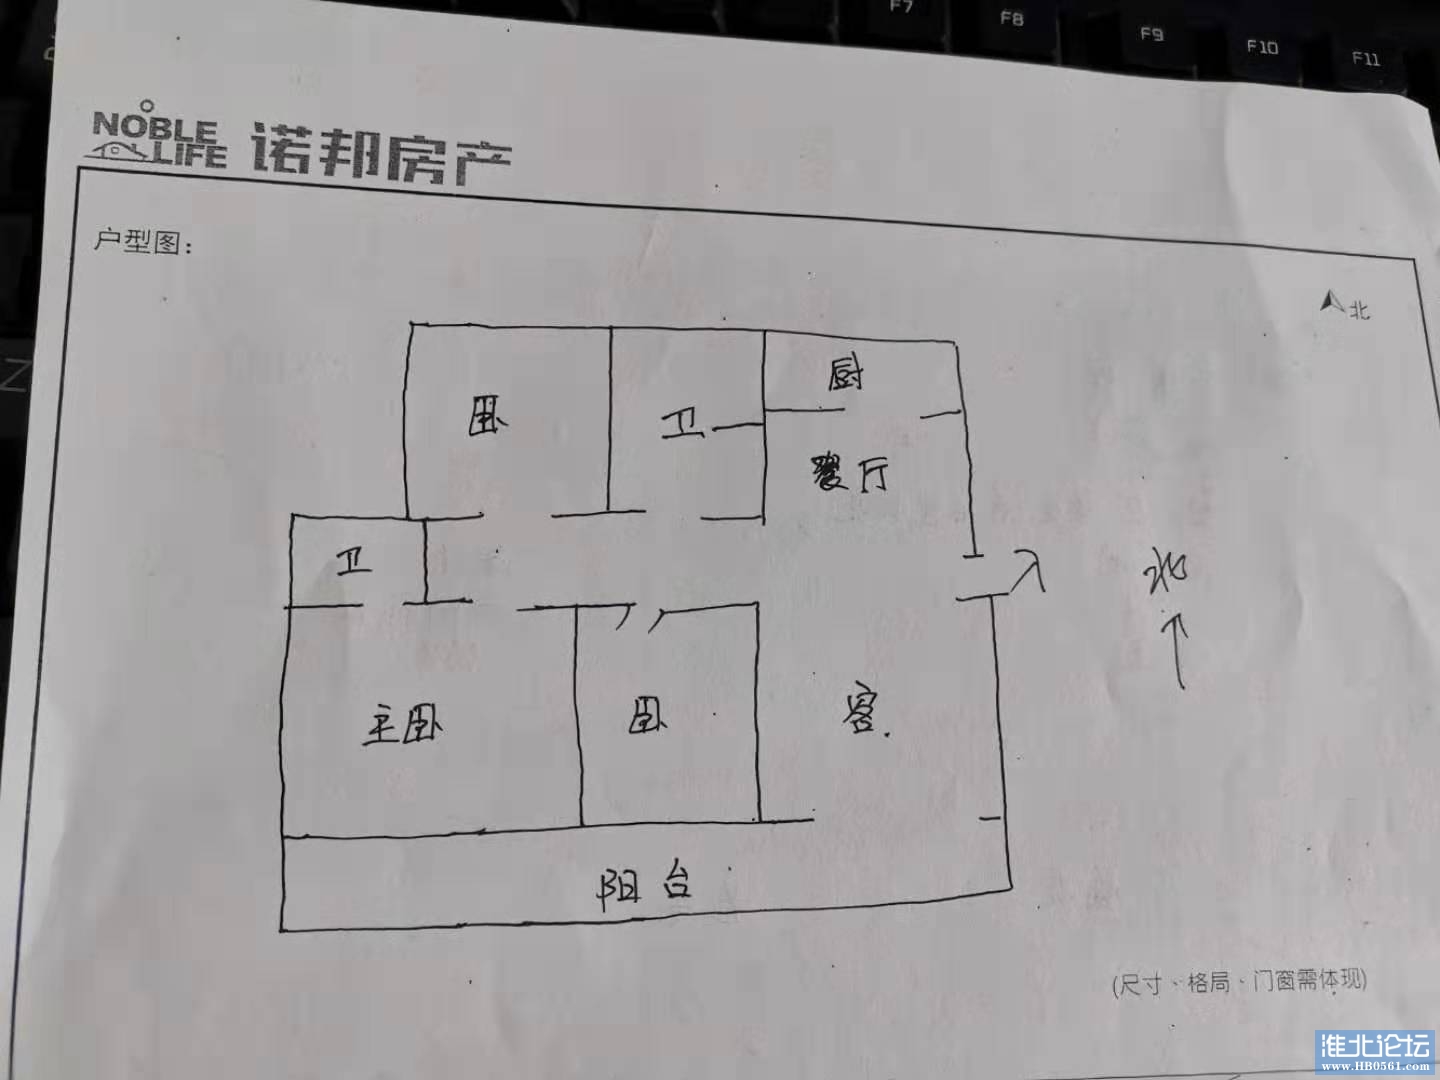 F7
F8
F9
F10
F11
Z
NOBLE
LIFE
诺邦房产
户型图：
北
厨
卧
卫
餐厅
卫
入
北
主卧
卧
客
阳台
(尺寸、格局、门窗需体现)
淮北论坛
www.HB0561.com